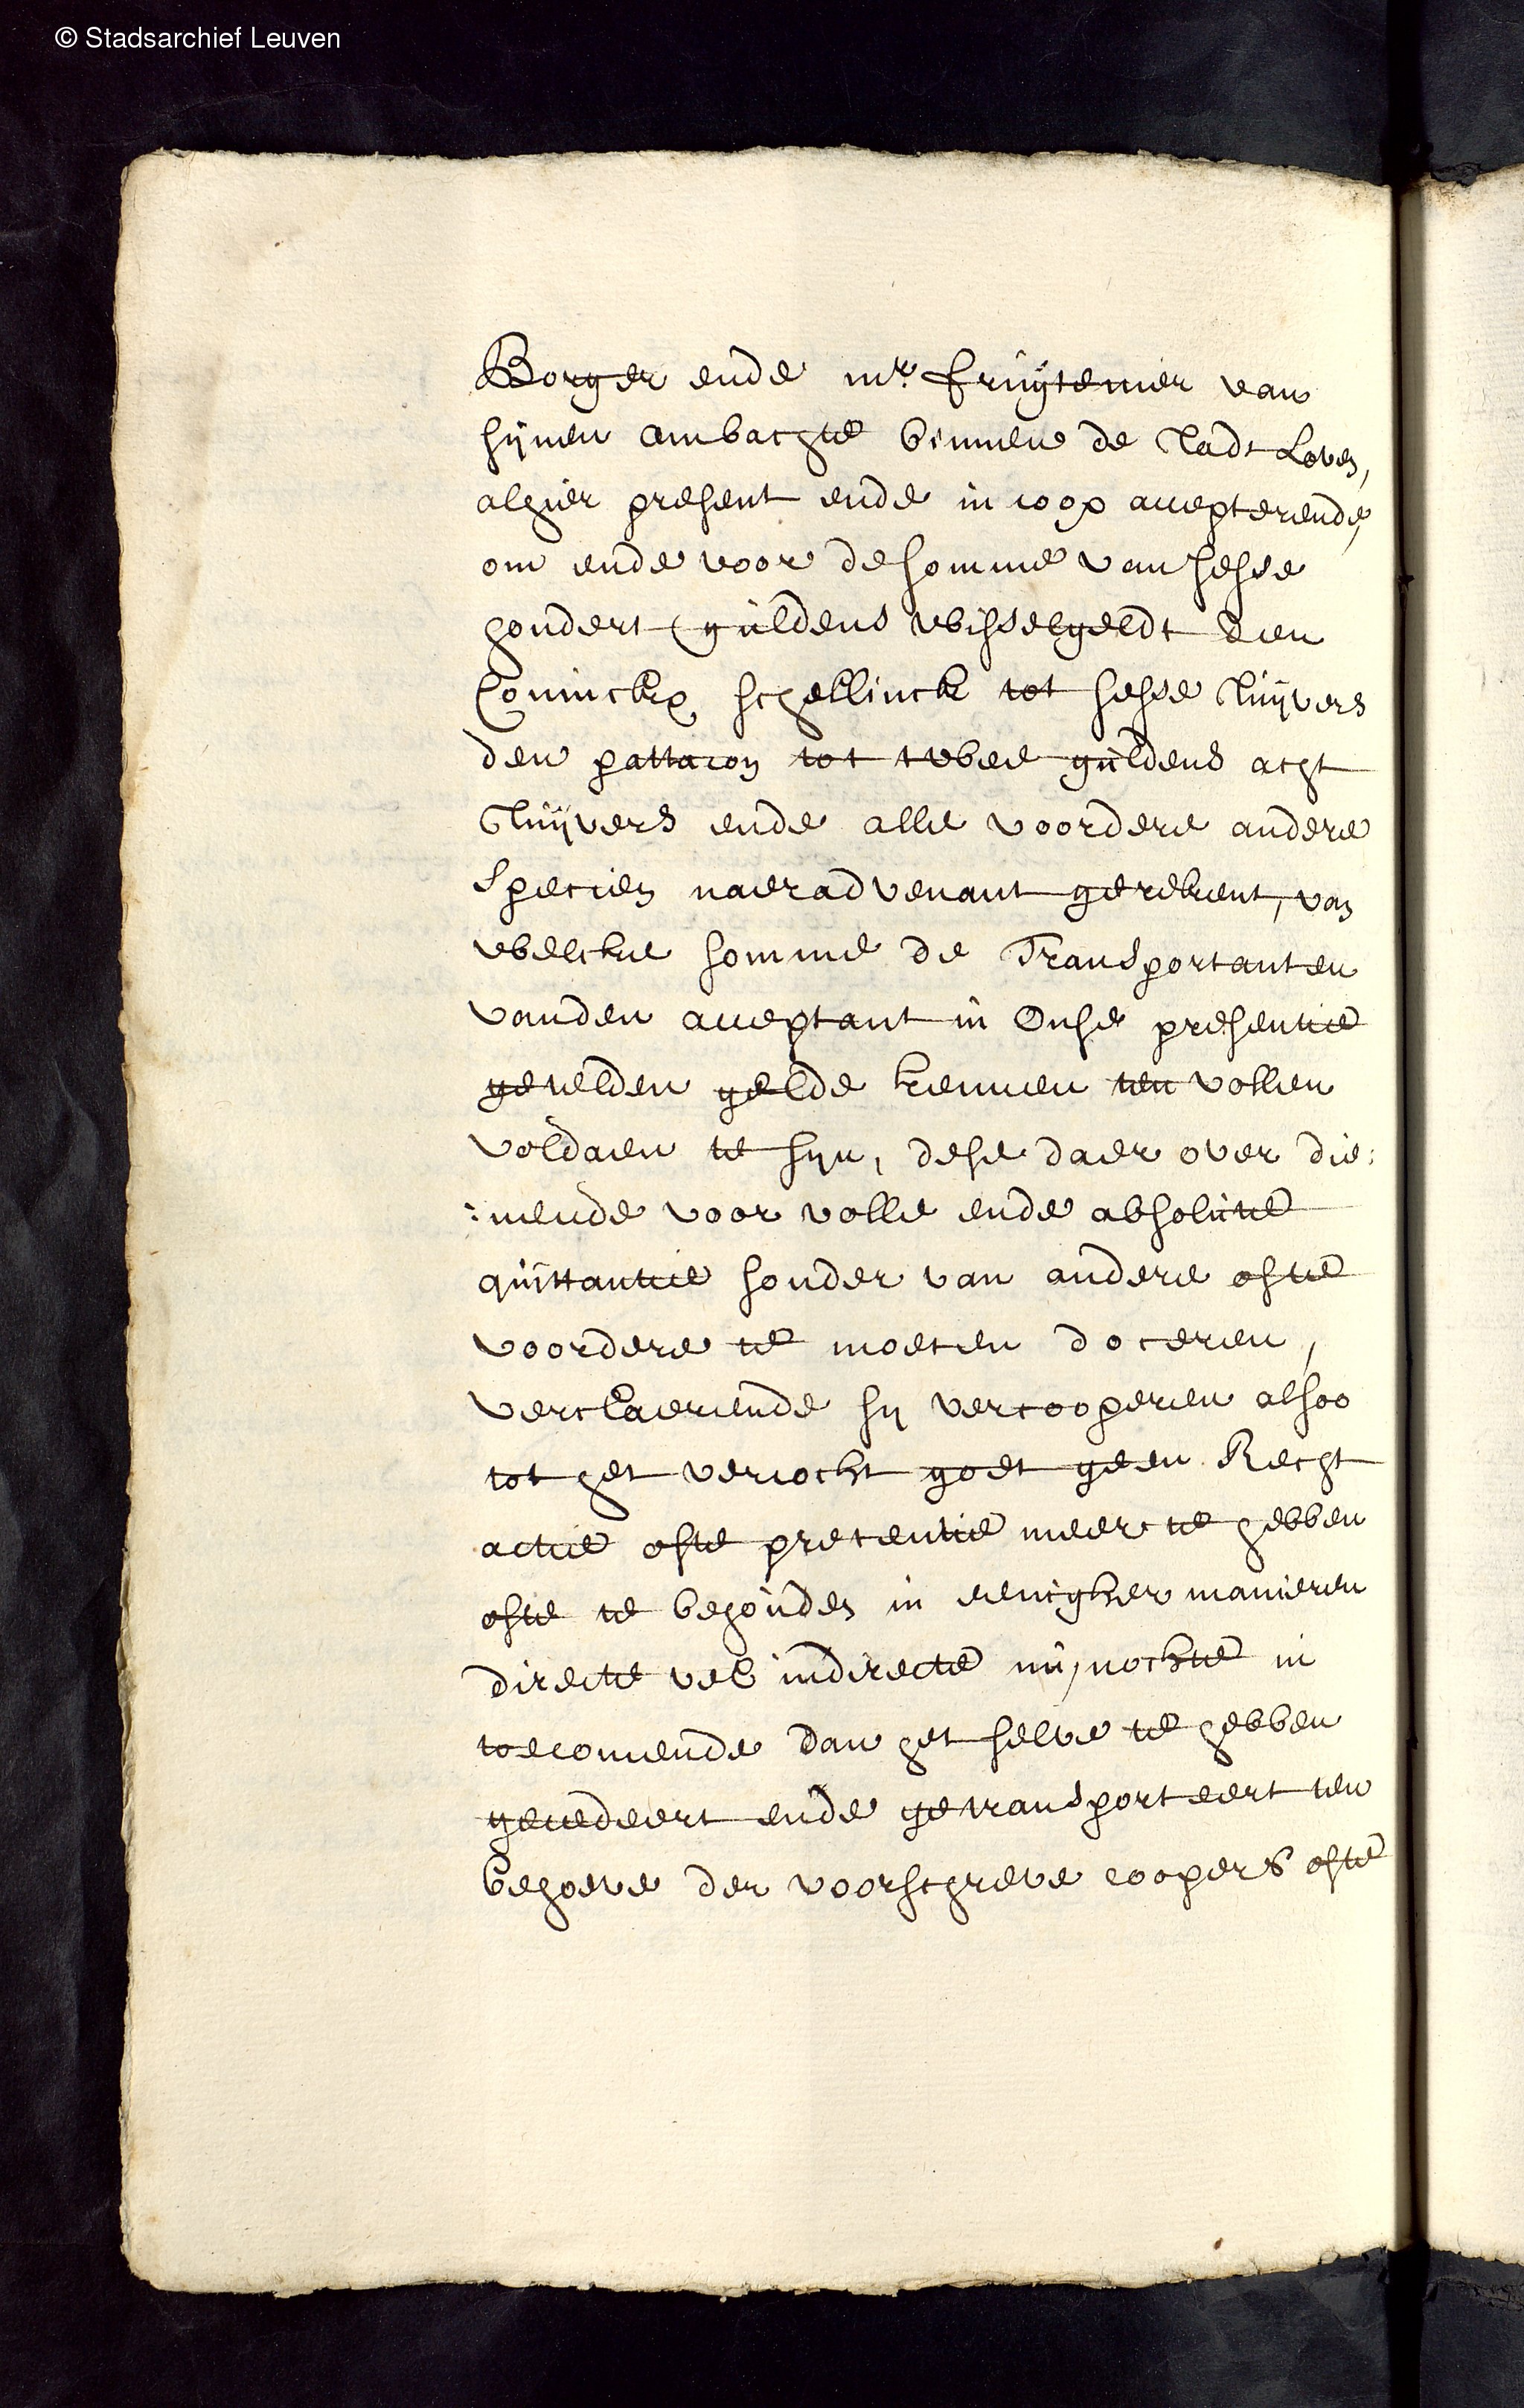 © Stadsarchief Leuven
Borger ende mr. fruytenier van
sijnen ambachte binnen de stadt Loven,
alhier present ende in coop accepterende,
om ende voor de somme van sesse
hondert guldens wisselgeldt den
Coninckx schellinck tot sesse stuyvers
den pattacon tot twee guldens acht
stuyvers ende alle voordere andere
specien naer advenant gerekent, van
welcke somme de Transportanten
vanden acceptant in onse presentie
getelden gelde kennen ten vollen
voldaen te syn, dese daer over die:
:nende voor volle ende absolute
quittantie sonder van andere ofte
voordere te moeten doceren,
verclaerende sy vercooperen alsoo
tot het vercocht goet geen Recht
actie ofte pretentie meer te hebben
ofte te behouden in eenigher manieren
directe vel indirecte nu, nochte in
toecomende dan het selve te hebben
gecedeert ende getransporteert ten
behoeve der voorschreve coopers ofte